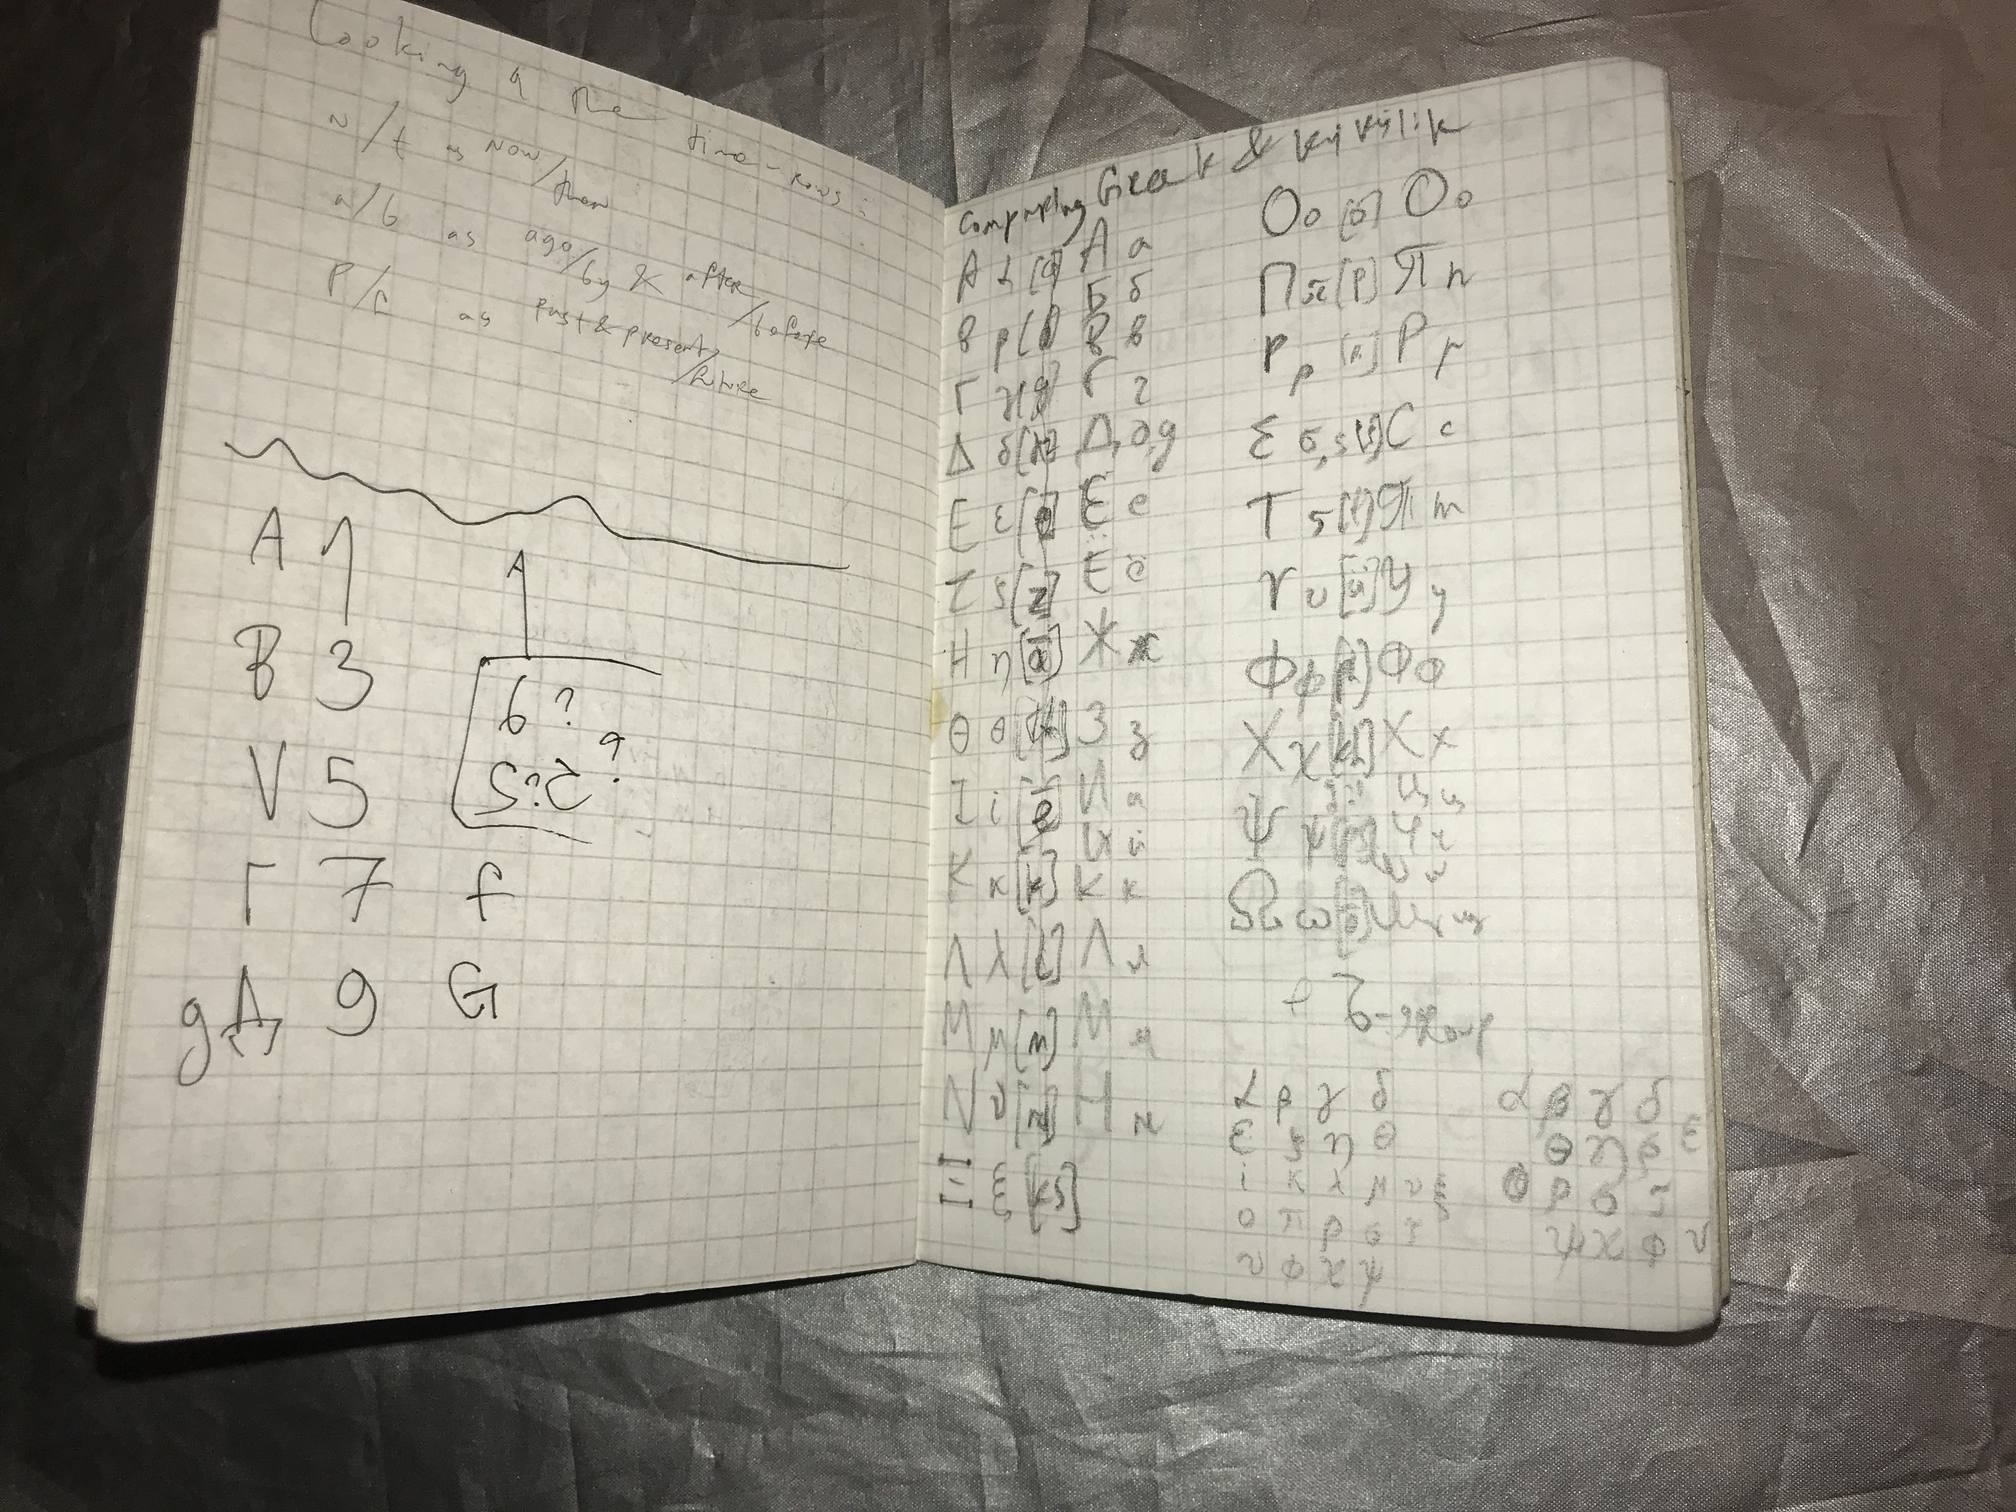 Looking at the time-rows:
n/t as Now/then
a/b as ago/by & after/before
P/f as Past & present/future
A 1
A
B 3
6?
V 5
?
Γ 7 f
g Д 9 G
Comparing Greek & kyrylik
Α α [a] А а
Б б
Β β В в
Γ γ [g] Г г
Δ δ Д, д, g
Ε ε [e] Е е
Ё ё
Ζ ζ [z]
Η η [ä] Ж ж
Θ θ З з
Ι i [e] И и
Й й
Κ κ [k] К к
Λ λ [l] Λ л
Μ μ [m] М м
Ν ν [n] Н н
Ξ ξ [ks]
Ο ο [o] О о
Π π [p] П п
Ρ ρ Р р
Σ σ, ς [s] С с
Τ [t] т
Υ υ [ü] У у
Φ φ Ф ф
Χ χ Х х
Ц ц
Ψ ψ Ч ч
Ω ω
α β γ δ
ε ζ η θ
i κ λ μ ν ξ
ο π ρ σ τ
υ φ χ ψ
α β γ δ
θ η ζ ε
ρ σ τ
ψ χ φ υ